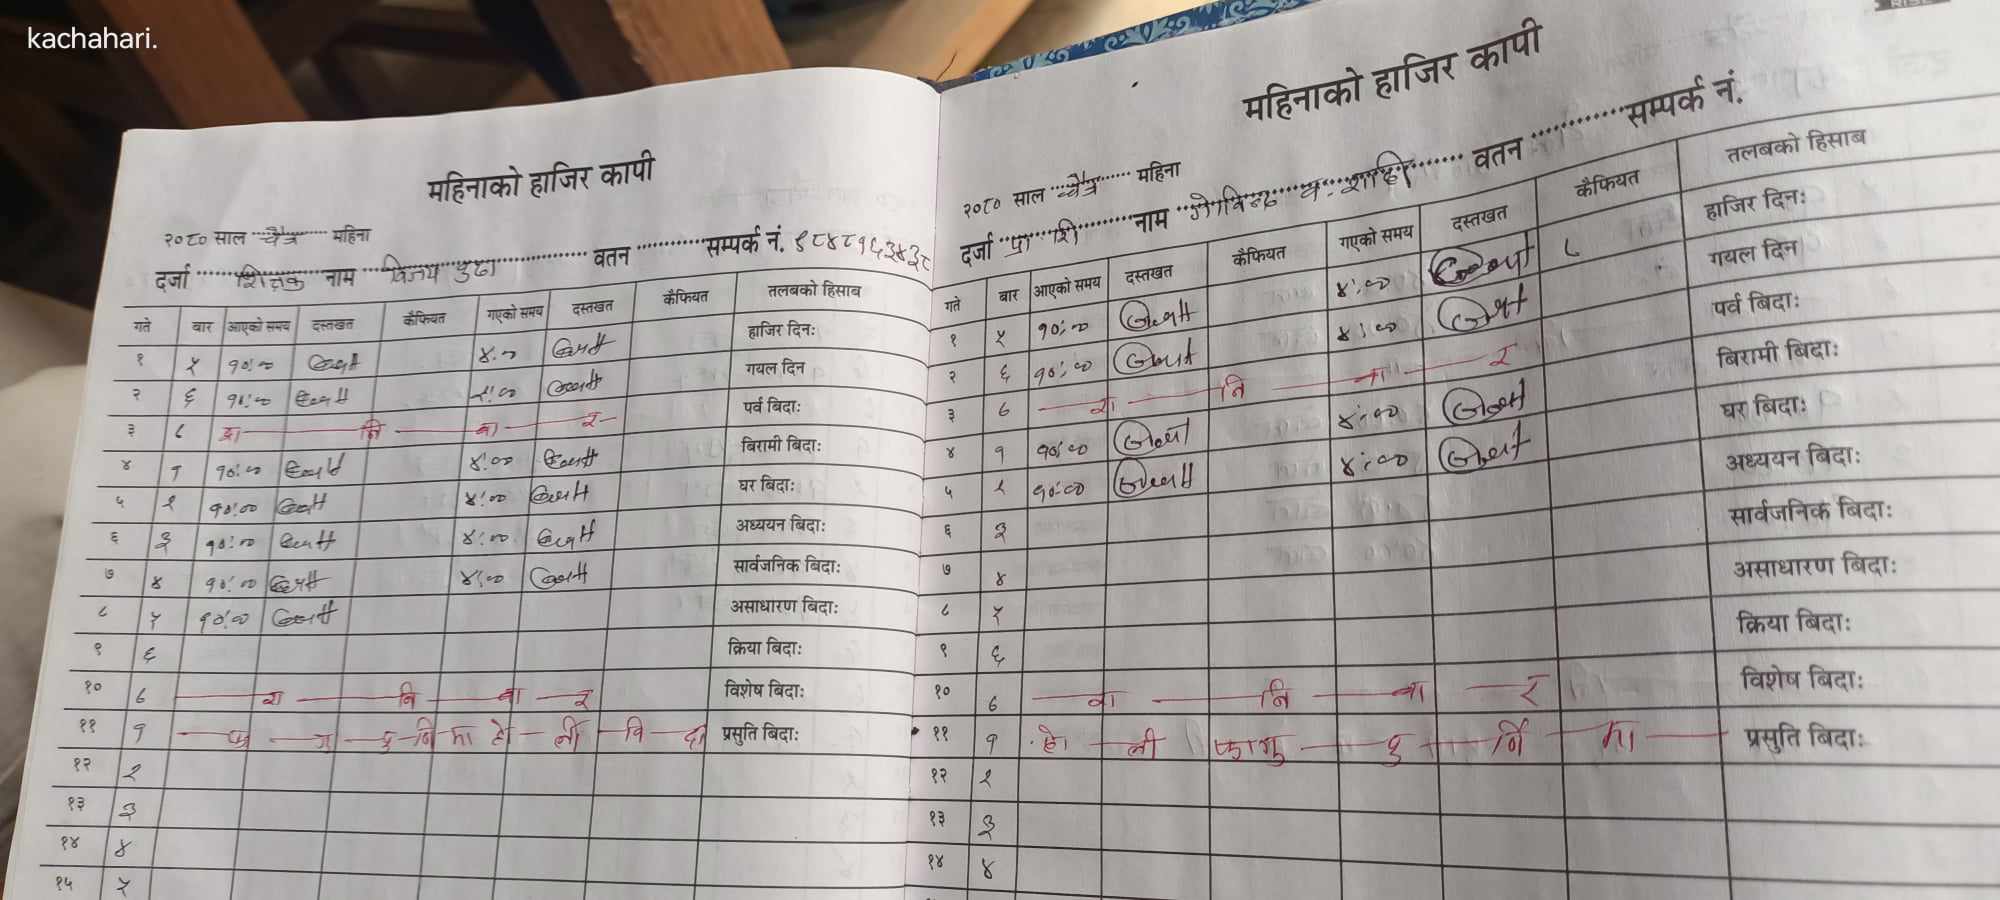 kachahari.
महिनाको हाजिर कापी
२०८० साल चैत्र महिना
दर्जा शिक्षक नाम विजय बुढा वतन सम्पर्क नं.
गते बार आएको समय दस्तखत कैफियत गएको समय दस्तखत कैफियत तलबको हिसाब
१ ५ १०:०० ४:०० हाजिर दिन:
२ ६ १०:०० ४:०० गयल दिन
३ श नि वा र पर्व बिदा:
४ १ १०:०० ४:०० बिरामी बिदा:
५ २ १०:०० ४:०० घर बिदा:
६ ३ १०:०० ४:०० अध्ययन बिदा:
७ ४ १०:०० ४:०० सार्वजनिक बिदा:
८ ५ १०:०० असाधारण बिदा:
९ ६ क्रिया बिदा:
१० श नि वा र विशेष बिदा:
११ १ हो ली वि दा प्रसुति बिदा:
१२ २
१३ ३
१४ ४
१५ ५
महिनाको हाजिर कापी
२०८० साल चैत्र महिना
दर्जा प्रा शि नाम गोविन्द ब. शाही वतन सम्पर्क नं.
गते बार आएको समय दस्तखत कैफियत गएको समय दस्तखत कैफियत तलबको हिसाब
१ ५ १०:०० ४:०० हाजिर दिन:
२ ६ १०:०० ४:०० गयल दिन
३ श नि वा र पर्व बिदा:
४ १ १०:०० ४:०० बिरामी बिदा:
५ २ १०:०० ४:०० घर बिदा:
६ ३ अध्ययन बिदा:
७ ४ सार्वजनिक बिदा:
८ ५ असाधारण बिदा:
९ ६ क्रिया बिदा:
१० श नि वा र विशेष बिदा:
११ १ हो ली फागु पु र्नि मा प्रसुति बिदा:
१२ २
१३ ३
१४ ४